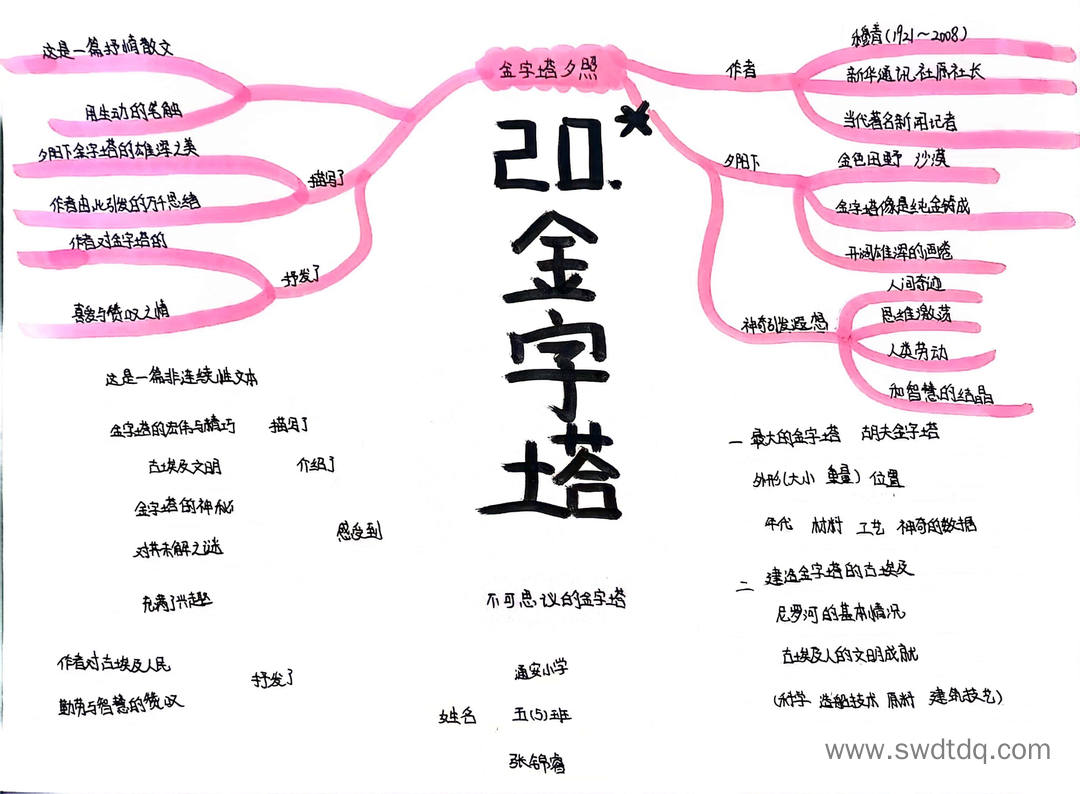 金字塔夕照
20.*
金字塔
这是一篇抒情散文
用生动的笔触
描写了
夕阳下金字塔的雄浑之美
作者由此引发的万千思绪
抒发了
作者对金字塔的
喜爱与赞叹之情
作者
穆青(1921~2008)
新华通讯社原社长
当代著名新闻记者
夕阳下
金色田野 沙漠
金字塔像是纯金铸成
开阔雄浑的画卷
神奇引发遐想
人间奇迹
思维激荡
人类劳动
和智慧的结晶
不可思议的金字塔
这是一篇非连续性文本
金字塔的宏伟与精巧 描写了
古埃及文明 介绍了
金字塔的神秘
感受到
对其未解之谜
充满了兴趣
作者对古埃及人民
抒发了
勤劳与智慧的赞叹
一 最大的金字塔 胡夫金字塔
外形(大小 重量) 位置
年代 材料 工艺 神奇的数据
二 建造金字塔的古埃及
尼罗河的基本情况
古埃及人的文明成就
(科学 造船技术 原料 建筑技艺)
通安小学
姓名 五(5)班
张锦睿
www.swdtdq.com